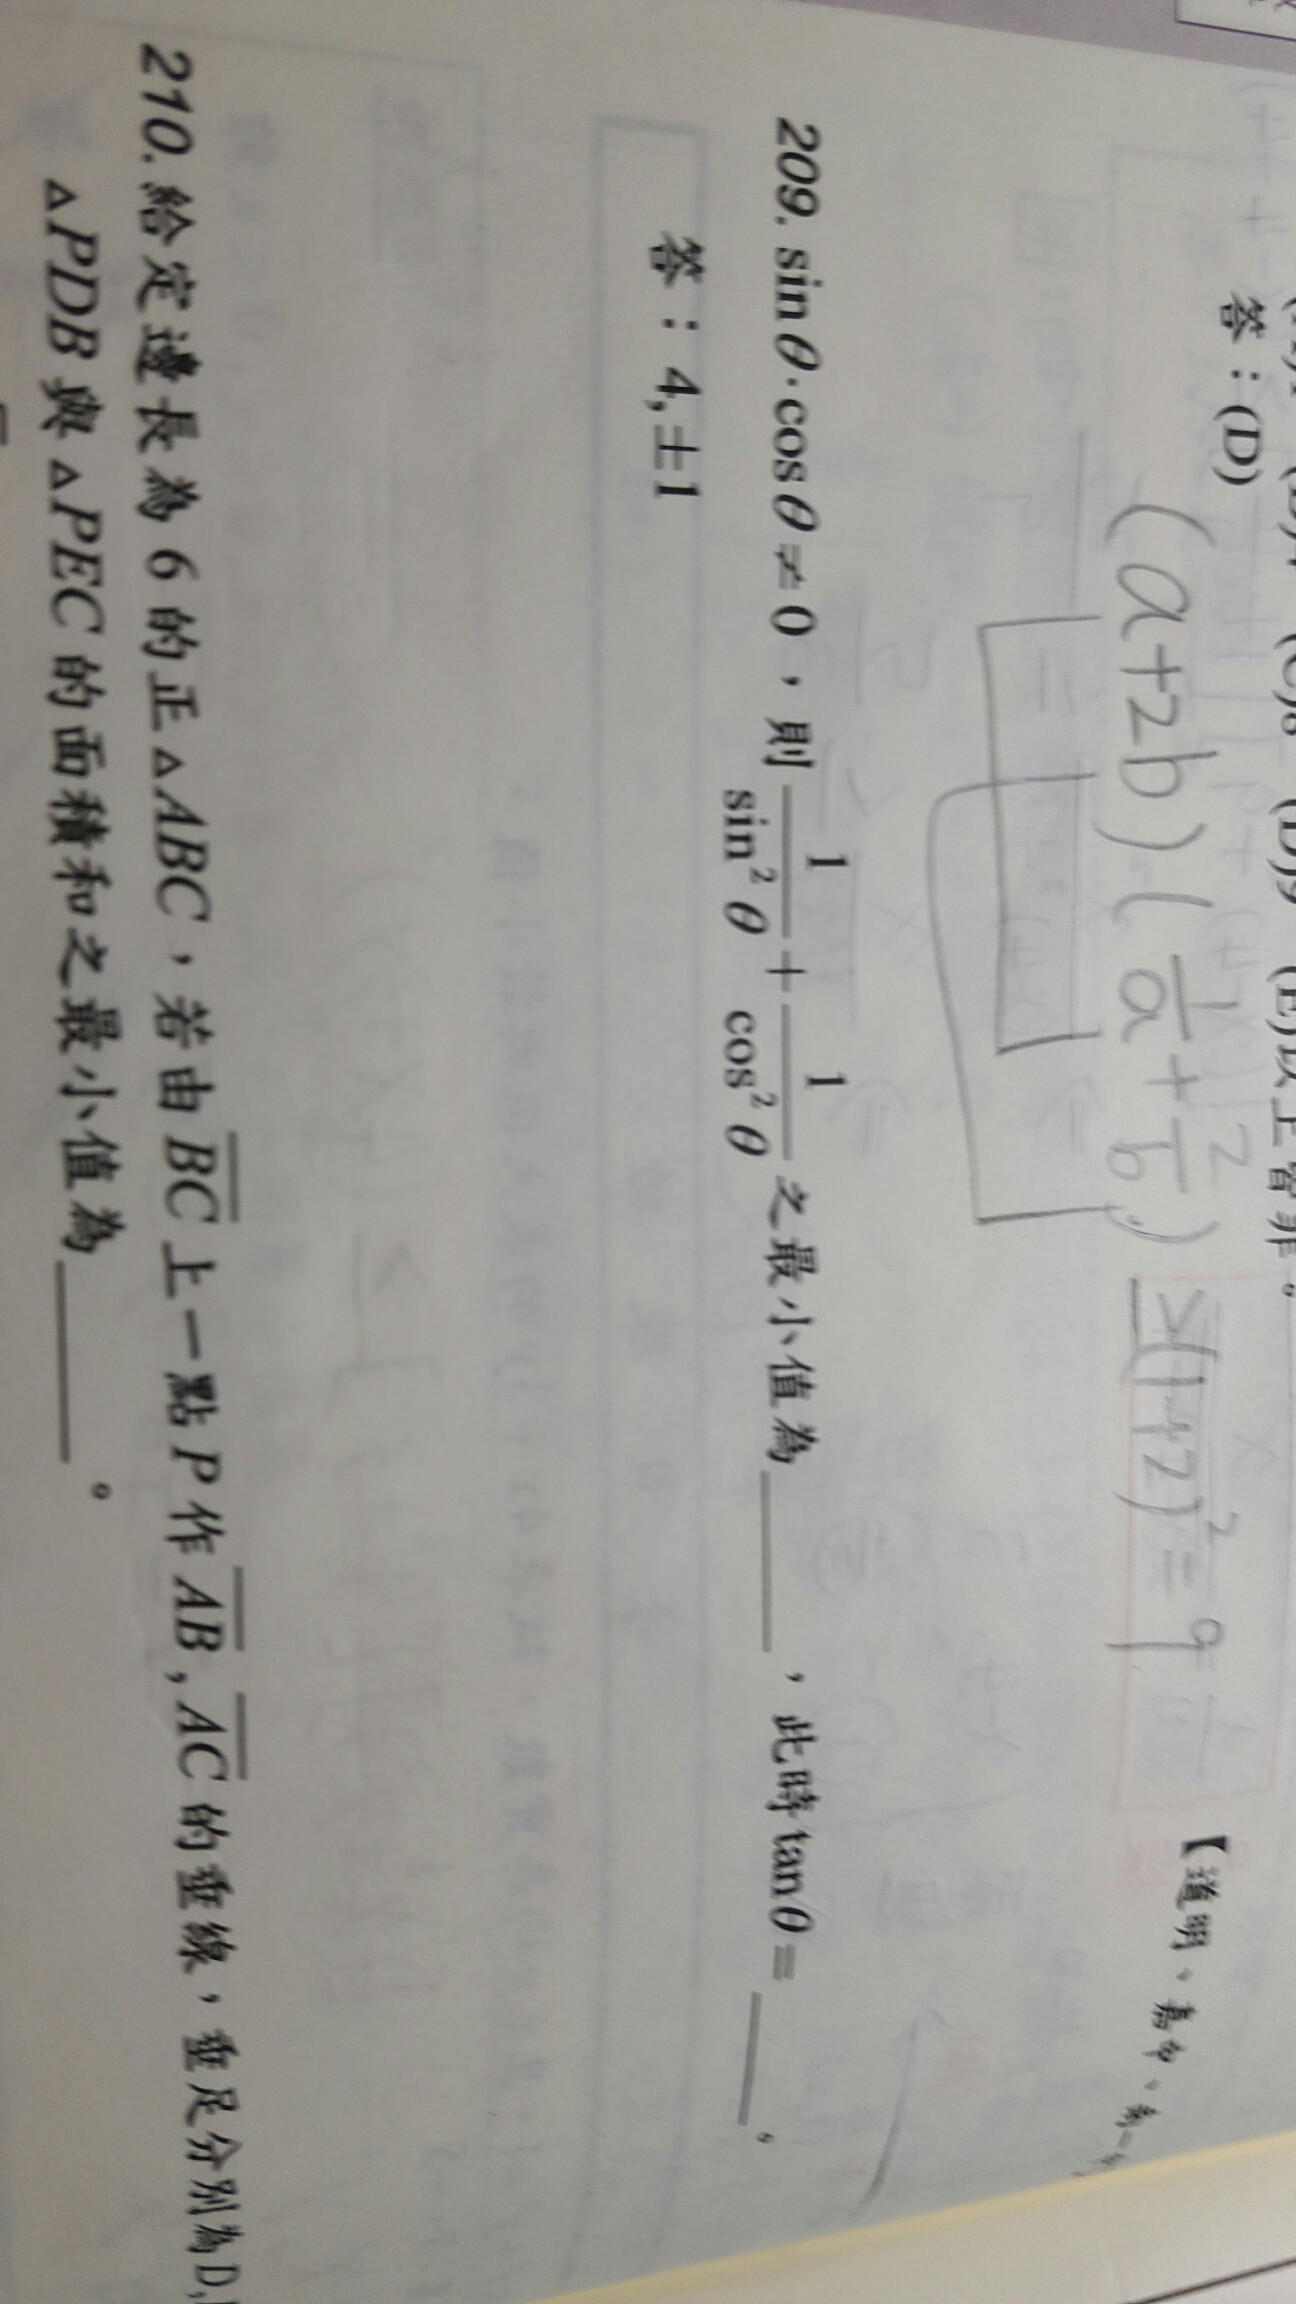 答：(D)
(a+2b)(1/a+2/b)≥(1+2)²=9
【道明、嘉中、
209. sinθ·cosθ≠0，則 1/sin²θ + 1/cos²θ 之最小值為____，此時tanθ=____。
答：4,±1
210. 給定邊長為 6 的正△ABC，若由BC上一點P作AB,AC的垂線，垂足分別為D,
△PDB與△PEC的面積和之最小值為____。